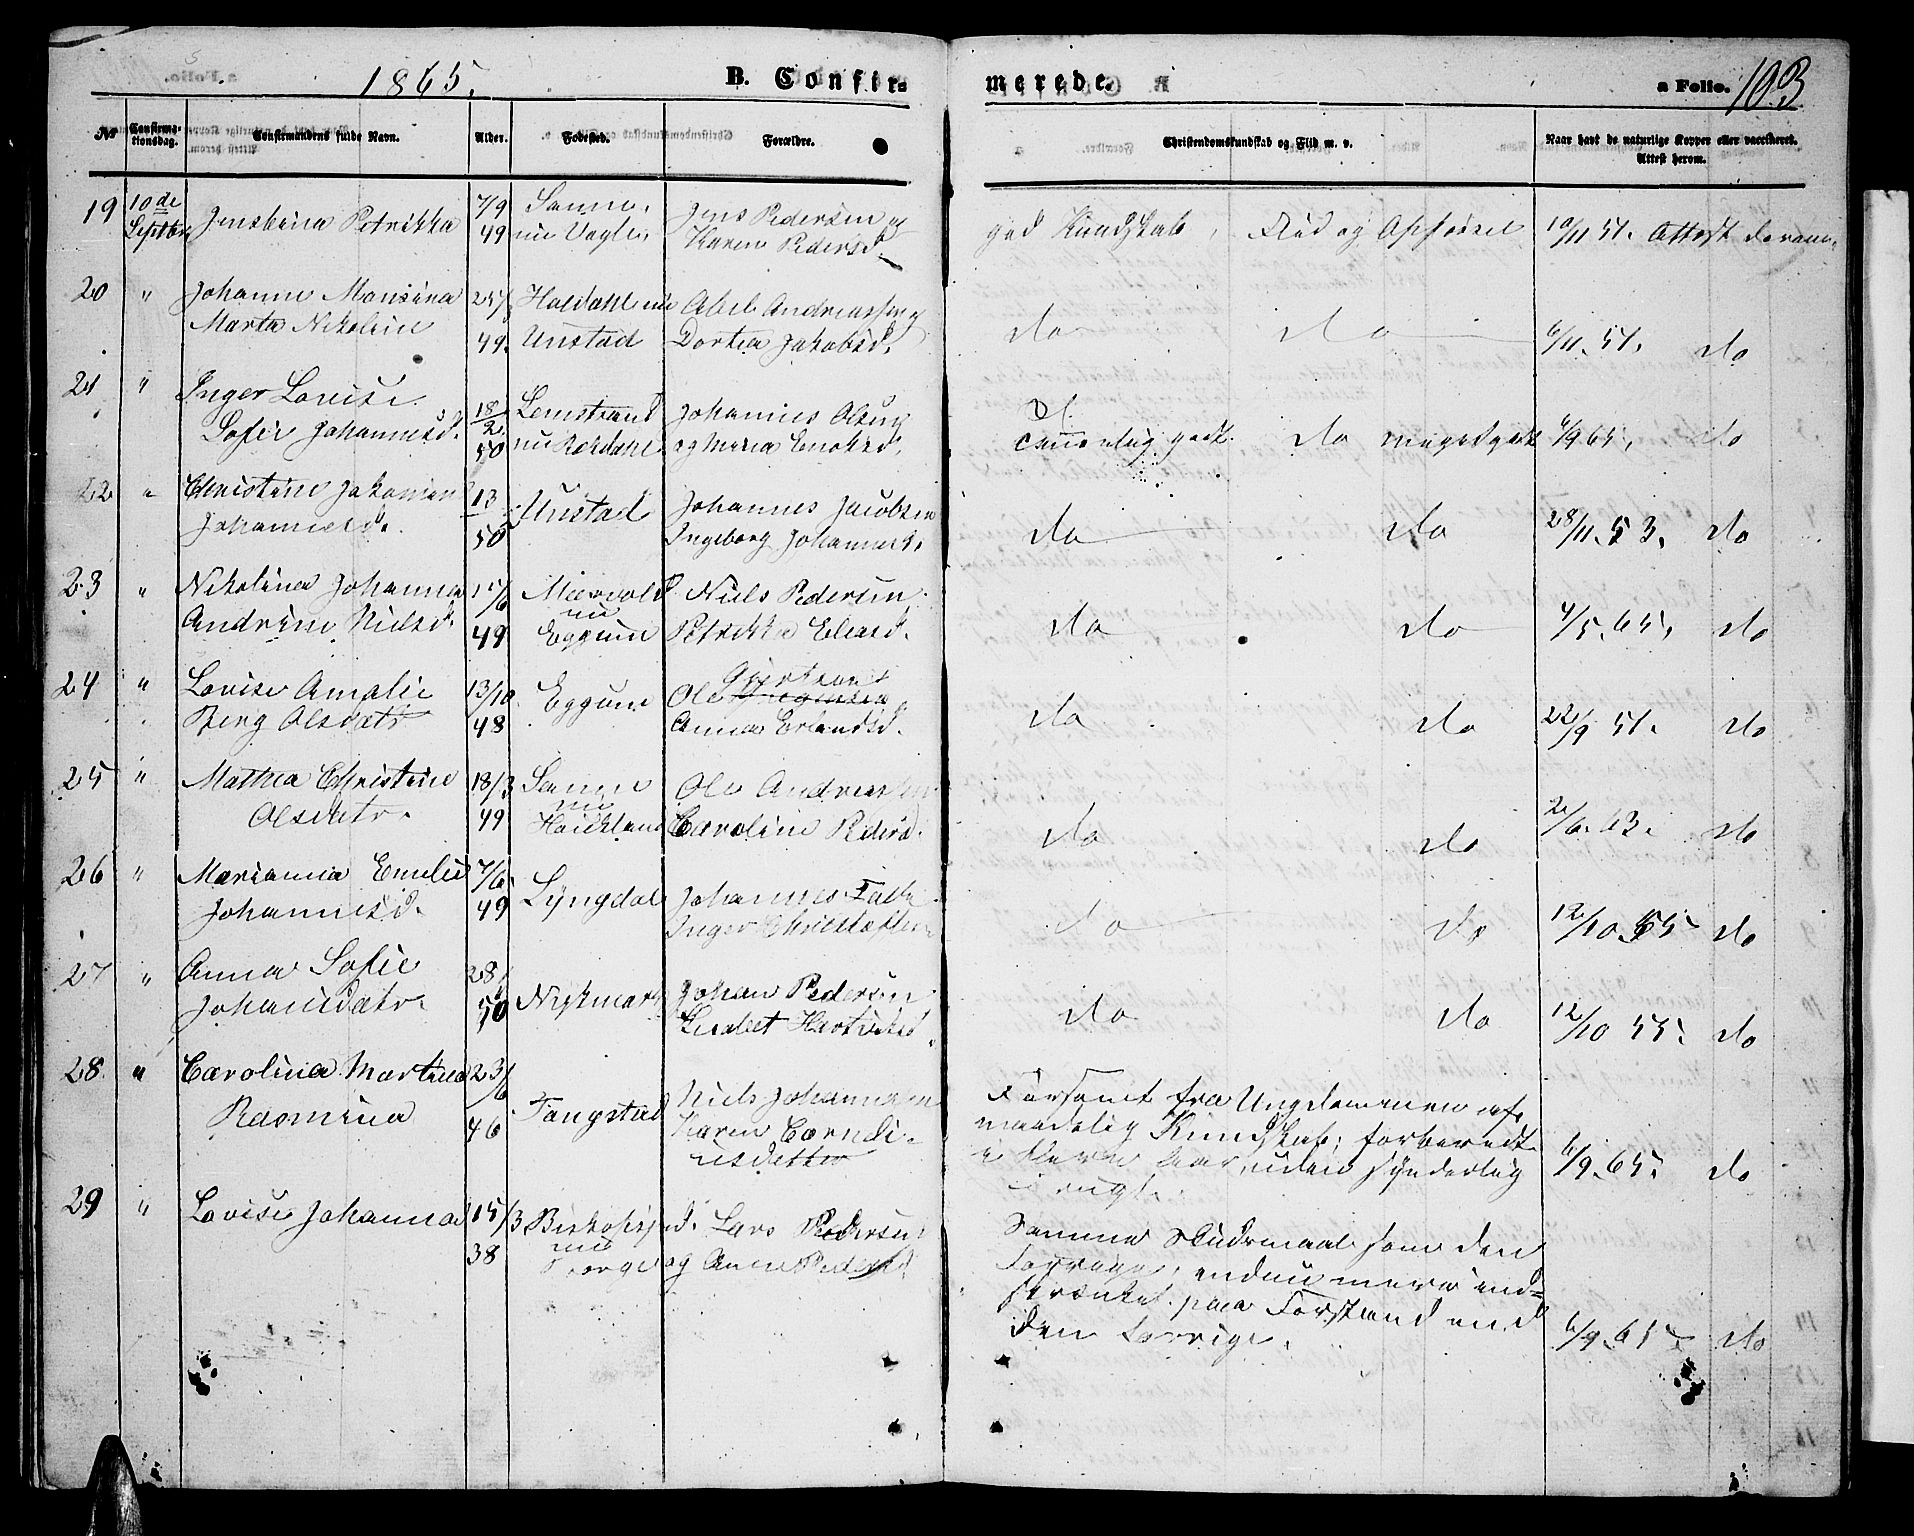 1865. B. Confir-
merede. a Folio. 103
No Confirma-tionsdag. Confirmandens fulde Navn. Alder. Fødested. Forældre. Christendomskundskab og Flid m. v. Naar havt de naturlige Kopper eller vaccineret. Attest herom.
19 10de Septbr Jensbina Petrikka 7/9 49 Sanne, nu Vagle, Jens Pedersen og Karen Pedersd. god Kundskab, Flid og Opførsel 10/11 51. Attest
20 " Johanne Monsina Marta Nikoline 25/ 49. Holdahl nu Unstad Abel Andreassen og Dortea Jakobsd. do do 6/11. 51. do
21 " Inger Lovise Sofie Johannesd. 18/2 50 Lemstrand nu Johannes Olsen og Maria Enoksd. temmelig godt. do meget godt 6/9 65, do
22 " Christine Johannesd. 13 50 Unstad Johannes Jacobsen Ingeborg Johannesd. do do 28/11. 53. do
23 " Nikolina Johanna Andrine Nielsd. 15/6 49 Mærvold nu Eggum Niels Pedersen Petrikka Eliasd. do do 4/5. 65, do
24 " Lovise Amalie Berg Olsdatr 13/10 48 Eggum Ole Anna Erlandsd. do do 22/9 51. do
25 " Mathea Christine Olsdatr. 18/3 49 Sanne nu Houkland Ole Andreassen Caroline Pedersd. do do 2/6. 63. do
26 " Marianna Emilie Johannesd. 7/6 49 Lyngdal Johannes Falk Inger do do 12/10. 55 do
27 " Anna Sofie Johansdatr. 28/ 50 Nykmark Johan Pedersen do do 12/10 55. do
28 " Carolina Martina Rasmina 23/6 46 Tangstad Niels Johannesen Karen Corneli-usdatter Forsømt fra Ungdommen af,
maadelig Kundskab; forberedt
i flere Aar, uden synderlig
Frugt. 6/9. 65. do
29 " Lovise Johanna 15/3 38 nu Lars Pedersen og Anne Pedersd. Samme Skudsmaal som den
Forrige, endnu mere ind=
skrænket paa Forstand end
den forrige. 6/9. 65 do